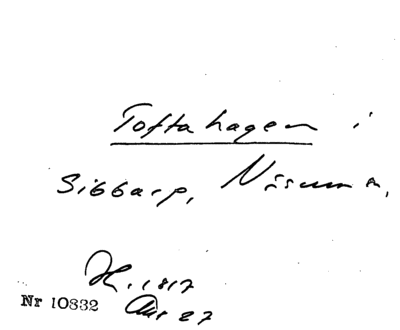 Toftahagen i
Sibbarp, Näsum
1817
Nr 10832 27